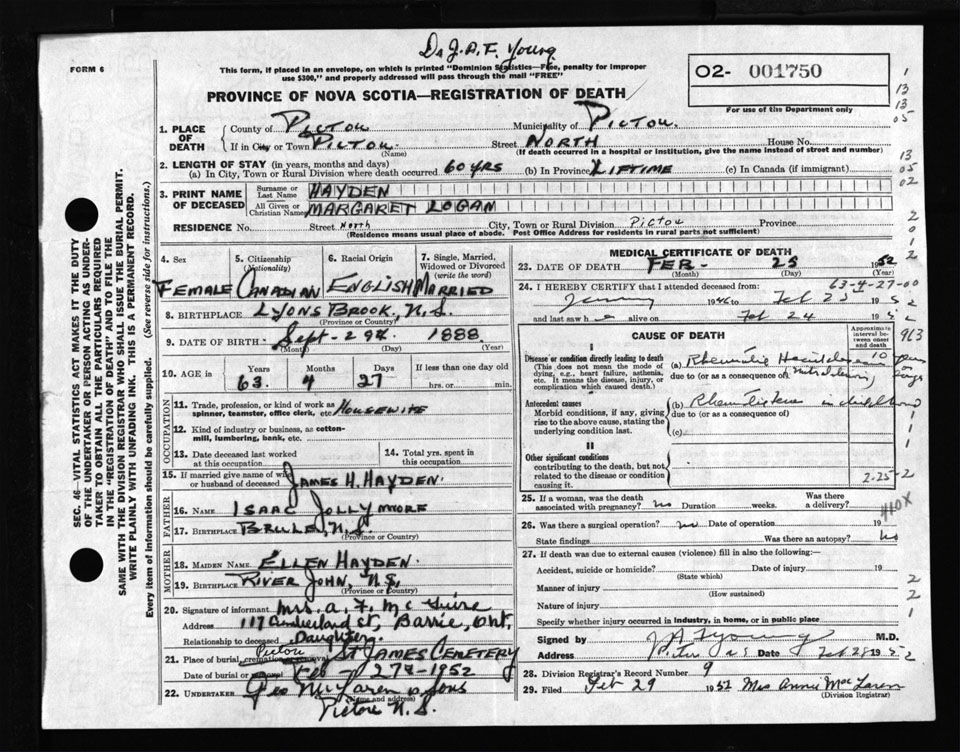 Dr J.A.F. Young
FORM 6
This form, if placed in an envelope, on which is printed "Dominion Statistics—Free, penalty for improper
use $300," and properly addressed will pass through the mail "FREE"
O2- 001750
For use of the Department only
PROVINCE OF NOVA SCOTIA—REGISTRATION OF DEATH
1. PLACE OF DEATH
County of PICTOU Municipality of PICTOU.
If in City or Town PICTOU. Street NORTH House No.
(Name) (If death occurred in a hospital or institution, give the name instead of street and number)
2. LENGTH OF STAY (in years, months and days)
(a) In City, Town or Rural Division where death occurred 60 YRS (b) In Province LIFTIME (c) In Canada (if immigrant)
3. PRINT NAME OF DECEASED
Surname or Last Name HAYDEN
All Given or Christian Names MARGARET LOGAN
RESIDENCE No. Street North City, Town or Rural Division Pictou Province
(Residence means usual place of abode. Post Office Address for residents in rural parts not sufficient)
4. Sex FEMALE
5. Citizenship (Nationality) CANADIAN
6. Racial Origin ENGLISH
7. Single, Married, Widowed or Divorced (write the word) MARRIED
8. BIRTHPLACE LYONS BROOK, N.S.
(Province or Country)
9. DATE OF BIRTH Sept- 29th. 1888
(Month) (Day) (Year)
10. AGE in Years 63. Months 4 Days 27 If less than one day old hrs. or min.
OCCUPATION
11. Trade, profession, or kind of work as spinner, teamster, office clerk, etc. HOUSEWIFE
12. Kind of industry or business, as cotton-mill, lumbering, bank, etc.
13. Date deceased last worked at this occupation
14. Total yrs. spent in this occupation
15. If married give name of wife or husband of deceased JAMES H. HAYDEN.
FATHER
16. NAME ISAAC JOLLYMORE
17. BIRTHPLACE BRULE, N.S.
(Province or Country)
MOTHER
18. MAIDEN NAME ELLEN HAYDEN.
19. BIRTHPLACE RIVER JOHN, N.S.
(Province or Country)
20. Signature of informant Mrs. A. F. McGuire
Address 117 Cumberland St, Barrie, Ont.
Relationship to deceased Daughter.
21. Place of burial, cremation or removal Pictou ST JAMES CEMETERY
Date of burial or removal Feb 27th-1952
22. UNDERTAKER Geo McLaren & Sons
(Name and address)
Pictou N.S.
MEDICAL CERTIFICATE OF DEATH
23. DATE OF DEATH FEB- 25 1952
(Month) (Day) (Year)
63-4-27-00
24. I HEREBY CERTIFY that I attended deceased from:
1946 to Feb 25 1952
and last saw h alive on Feb 24 1952
CAUSE OF DEATH
Approximate interval between onset and death
I
Disease or condition directly leading to death
(This does not mean the mode of dying, e.g., heart failure, asthenia, etc. It means the disease, injury, or complication which caused death.)
(a) Rheumatic 10
due to (or as a consequence of)
Antecedent causes
Morbid conditions, if any, giving rise to the above cause, stating the underlying condition last.
(b) in childhood
due to (or as a consequence of)
(c)
II
Other significant conditions
contributing to the death, but not related to the disease or condition causing it.
2-25-2
25. If a woman, was the death associated with pregnancy? no Duration weeks. Was there a delivery?
410X
26. Was there surgical operation? no Date of operation 19
State findings Was there an autopsy? no
27. If death was due to external causes (violence) fill in also the following:—
Accident, suicide or homicide? Date of injury 19
(State which)
Manner of injury
(How sustained)
Nature of injury
Specify whether injury occurred in industry, in home, or in public place
Signed by J A F Young M.D.
Address Pictou N S Date Feb 28 1952
28. Division Registrar's Record Number 9
29. Filed Feb 29 1952 Mrs Annie MacLaren
(Division Registrar)
SEC. 46—VITAL STATISTICS ACT MAKES IT THE DUTY
OF THE UNDERTAKER OR PERSON ACTING AS UNDER-
TAKER TO OBTAIN ALL THE PARTICULARS REQUIRED
IN THE "REGISTRATION OF DEATH" AND TO FILE THE
SAME WITH THE DIVISION REGISTRAR WHO SHALL ISSUE THE BURIAL PERMIT.
WRITE PLAINLY WITH UNFADING INK. THIS IS A PERMANENT RECORD.
Every item of information should be carefully supplied. (See reverse side for instructions.)
1
13
13
05
13
05
02
2
0
1
2
913
1
1
2
2
1